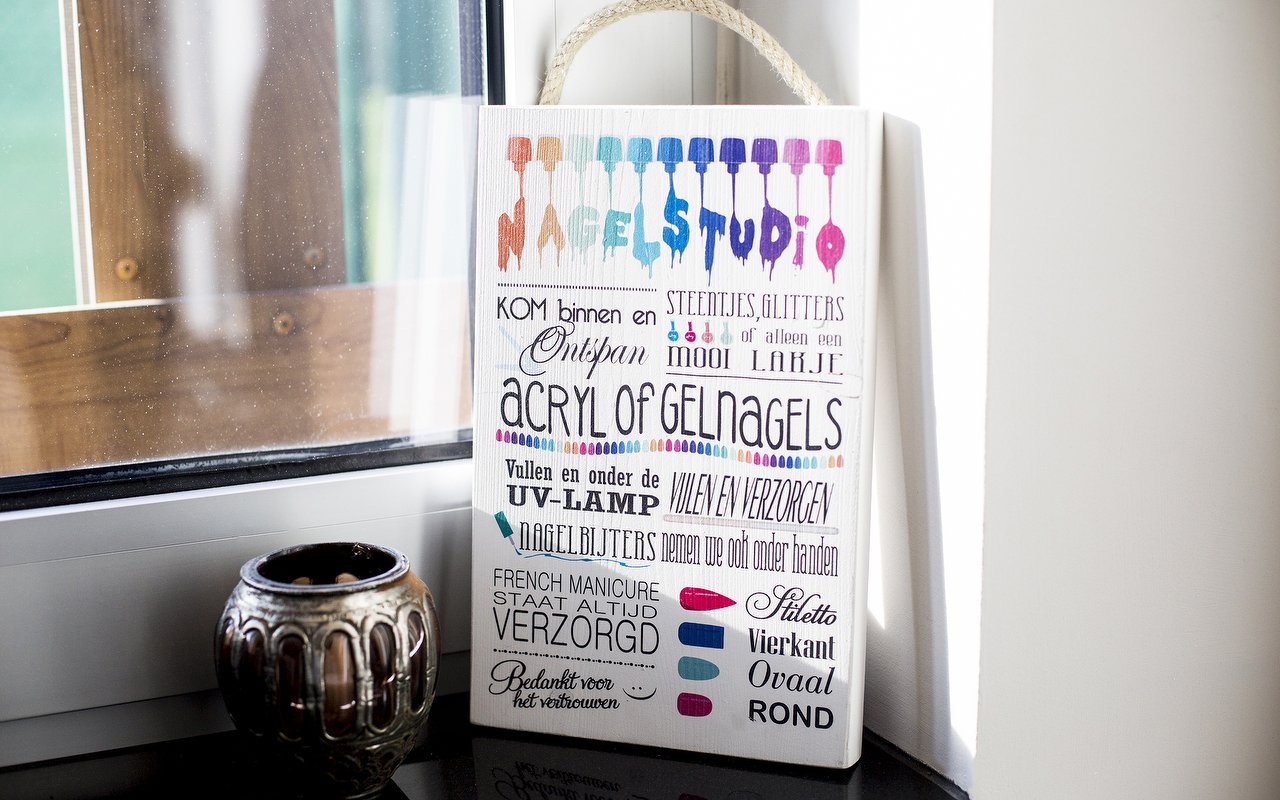 NAGELSTUDIO
KOM binnen en
Ontspan
STEENTJES, GLITTERS
of alleen een
MOOI LAKJE
ACRYL OF GELNAGELS
Vullen en onder de
UV-LAMP
VIJLEN EN VERZORGEN
NAGELBIJTERS nemen we ook onder handen
FRENCH MANICURE
STAAT ALTIJD
VERZORGD
Bedankt voor
het vertrouwen
Stiletto
Vierkant
Ovaal
ROND